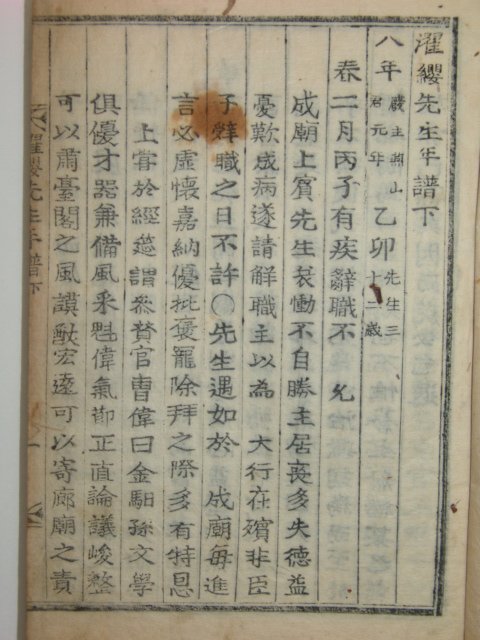 濯纓先生年譜下
八年 廢主燕山君元年 乙卯 先生三十二歲
春二月丙子有疾辭職不 允
成廟上賓先生哀慟不自勝主居喪多失德益
憂歎成病遂請解職主以為 大行在殯非臣
子辭職之日不許○先生遇知於 成廟每進
言必虛懷嘉納優批褒寵除拜之際多有特恩
上嘗於經筵謂參贊官曺偉曰金馹孫文學
俱優才器兼備風采魁偉氣節正直論議峻整
可以肅臺閣之風謨猷宏遠可以寄廊廟之責
濯纓先生年譜下